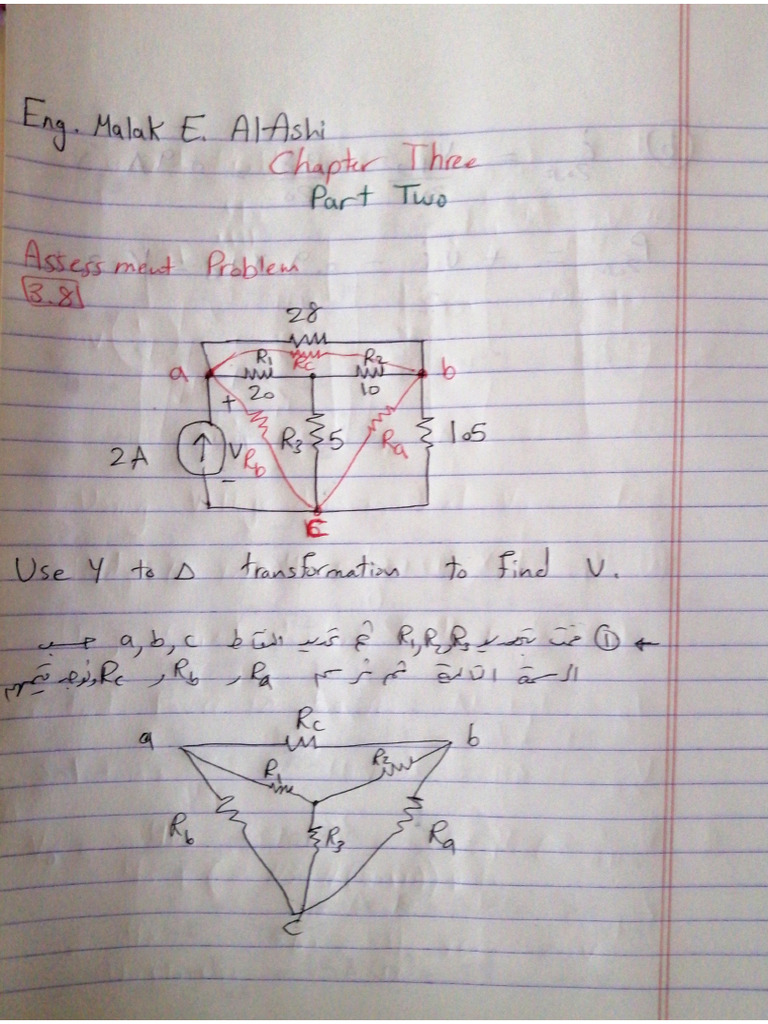 Eng. Malak E. Al-Ashi
Chapter Three
Part Two
Assessment Problem
3.8
28
a R1 Rc R2 b
+ 20 10
2A V Rb R3 5 Ra 105
-
C
Use Y to Δ transformation to find v.
← ① R1, R2, R3 ثم a, b, c
ثم نرسم Ra و Rb و Rc
Rc
a b
R1 R2
Rb R3 Ra
C